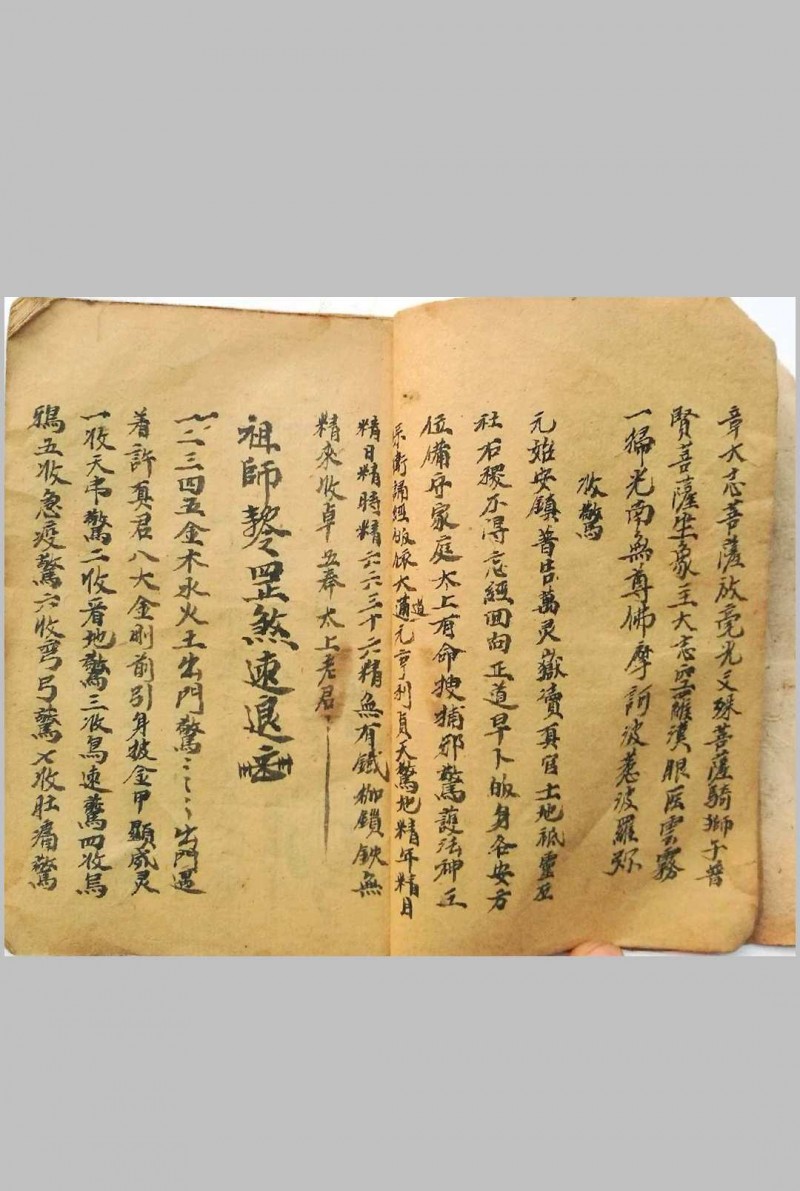 章大志菩薩放毫光文殊菩薩騎獅子普
賢菩薩坐象王大志空羅漢眼医雲霧
一掃光南無尊佛摩訶波惹波羅弥
收驚
元始安鎮普告萬灵嶽瀆真官土地祗靈五
社右稷不得忘經回向正道早卜皈身各安方
位備守家庭太上有命搜捕邪驚護法神王
衛誦經皈依大道元亨利貞天驚地精年精月
精日精時精六六三十六精無有鐵枷鎖鈌無
精來收卓五奉太上老君
祖師 罡煞速退
一二三四五金木水火土出門驚〻〻〻出門遇
着許真君八大金剛前引身披金甲顯威灵
一收天弔驚二收着地驚三收馬速驚四收烏
鴉五收急疫驚六收弯弓驚七收肚痛驚